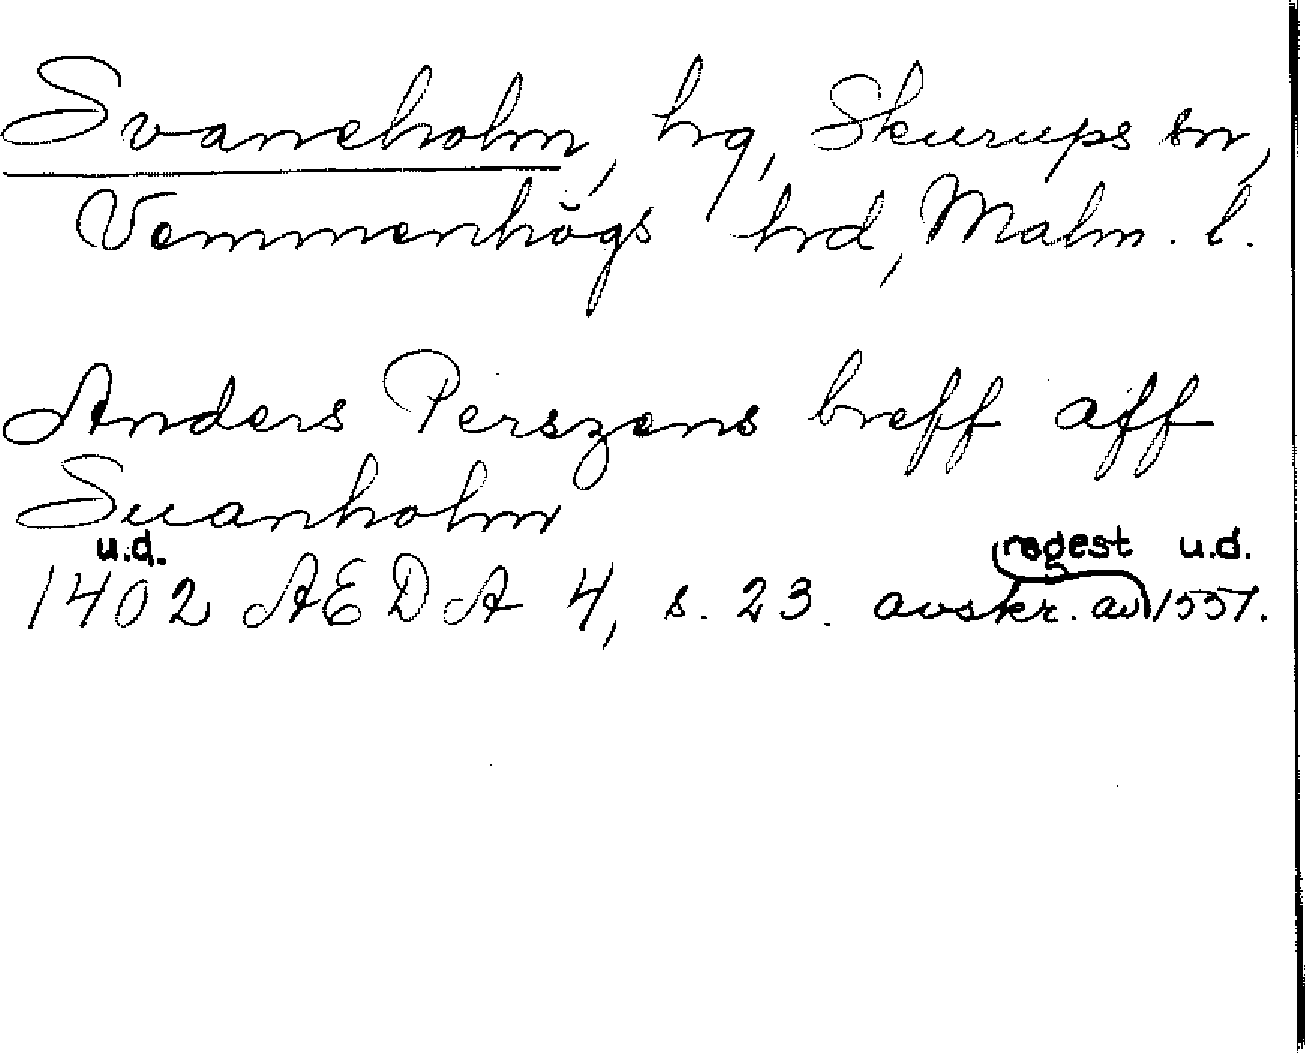 Svaneholm, hrg, Skurups sn,
Vemmenhögs hrd, Malm. l.
Anders Perszens breff aff
Suanholm
u.d. regest u.d.
1402 AEDA 4, s. 23. avskr. av 1551.